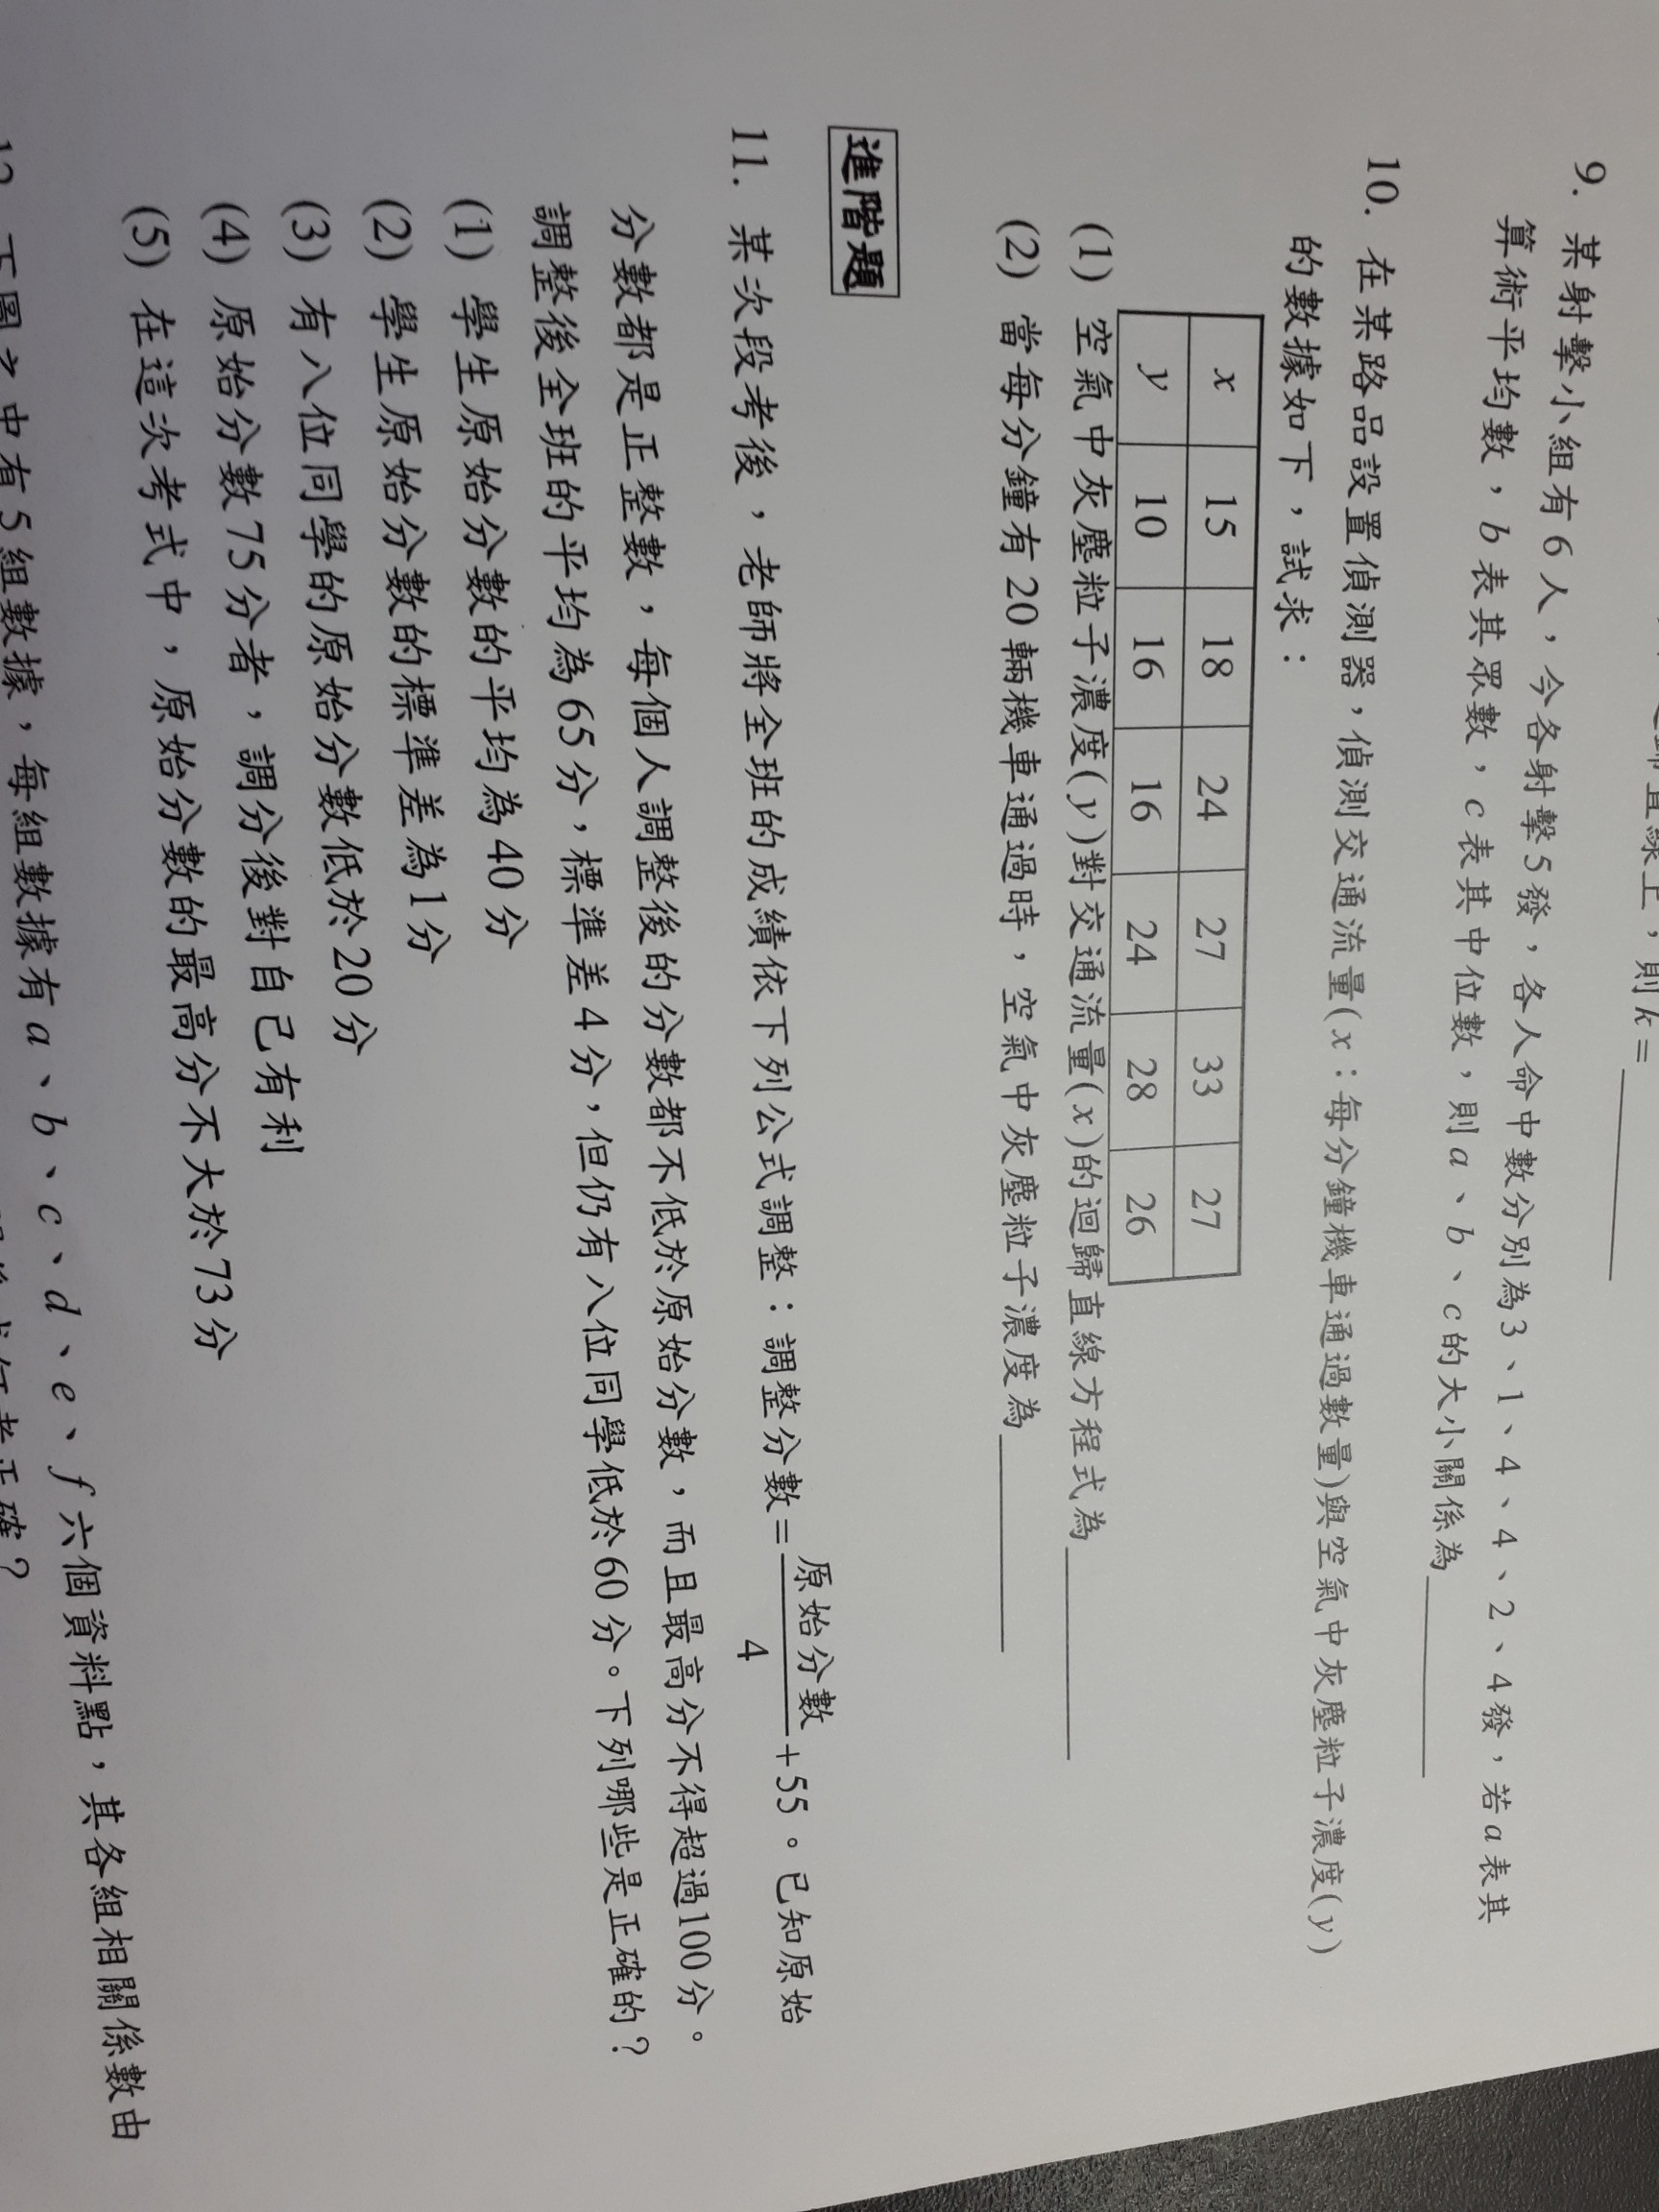 則k=
9. 某射擊小組有6人，今各射擊5發，各人命中數分別為3、1、4、4、2、4發，若a表其
算術平均數，b表其眾數，c表其中位數，則a、b、c的大小關係為
10. 在某路品設置偵測器，偵測交通流量(x：每分鐘機車通過數量)與空氣中灰塵粒子濃度(y)
的數據如下，試求：
x 15 18 24 27 33 27
y 10 16 16 24 28 26
(1) 空氣中灰塵粒子濃度(y)對交通流量(x)的迴歸直線方程式為
(2) 當每分鐘有20輛機車通過時，空氣中灰塵粒子濃度為
進階題
11. 某次段考後，老師將全班的成績依下列公式調整：調整分數=原始分數/4+55。已知原始
分數都是正整數，每個人調整後的分數都不低於原始分數，而且最高分不得超過100分。
調整後全班的平均為65分，標準差4分，但仍有八位同學低於60分。下列哪些是正確的？
(1) 學生原始分數的平均為40分
(2) 學生原始分數的標準差為1分
(3) 有八位同學的原始分數低於20分
(4) 原始分數75分者，調分後對自己有利
(5) 在這次考式中，原始分數的最高分不大於73分
12. 下圖之中有5組數據，每組數據有a、b、c、d、e、f六個資料點，其各組相關係數由
正確？